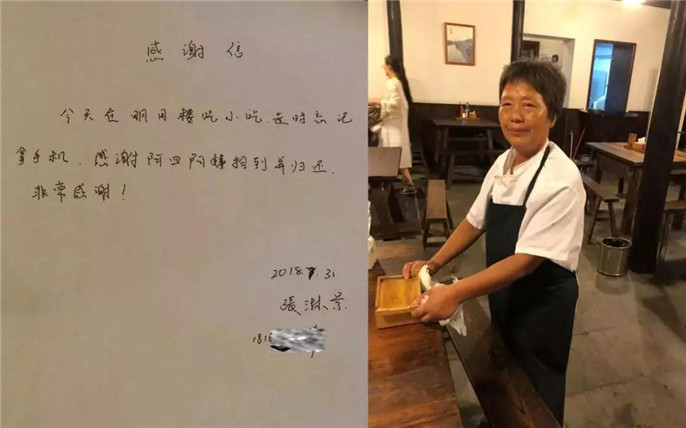 感谢信
今天在明月楼吃小吃,走时忘记
拿手机.感谢阿四阿姨拾到并归还.
非常感谢!
2018.7.31
張 景
181